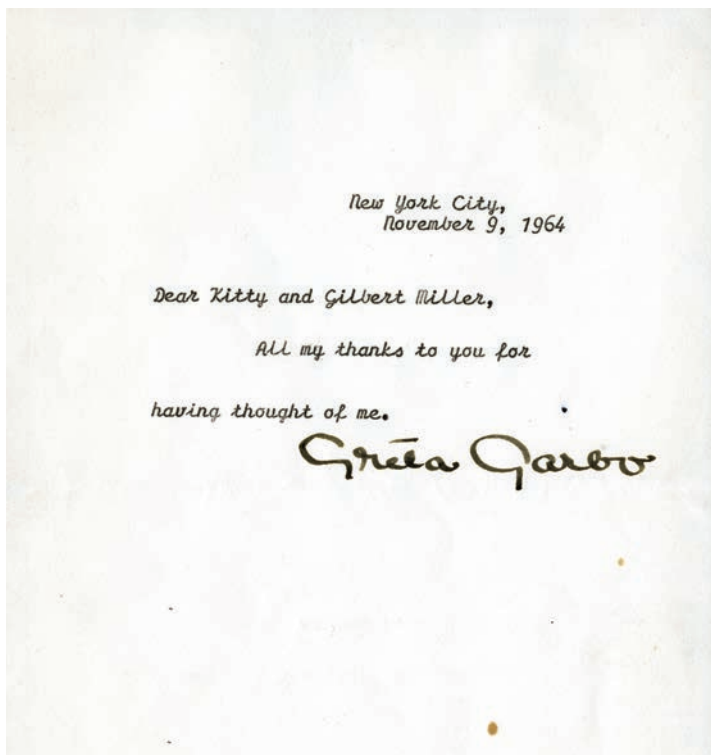 New York City,
November 9, 1964
Dear Kitty and Gilbert Miller,
All my thanks to you for
having thought of me.
Greta Garbo